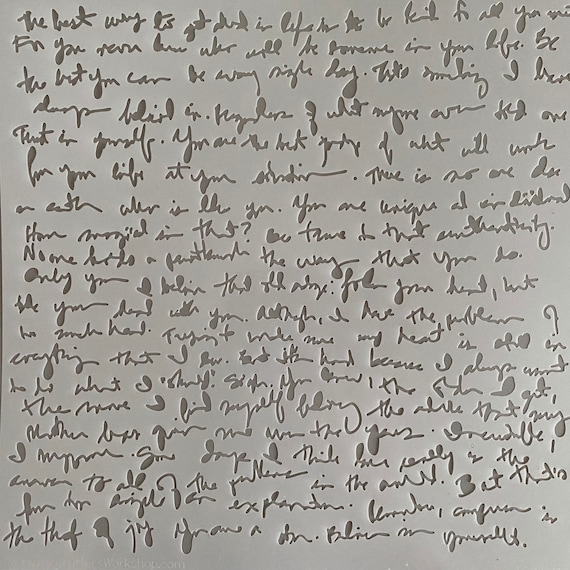 The best way to get ahead in life is to be kind to all you
For you never know who will be someone in your life. Be
the best you can be every single day. It's something I have
always believed in. Regardless of what anyone ever told
Trust in yourself. You are the best judge of what will work
for you life at your. There is no one else
on earth who is like you. You are unique and an individual
How magical is that? Be true to that authenticity.
No one holds a the way that you do.
Only you I believe that old adage: follow your heart, but
take your head with you. Although, I have the problem of
too much head. Trying to make sure my heart is still in
everything that I do. But it's hard because I always want
to do what I "should". Sigh. You know, the I get,
the more I find myself following the advice that my
Mother has given me over the years. Inevitable,
I suppose. Some days I think love really is the
answer to all of the problems in the world. But that's
far too simple of an explanation. Remember, comparison is
the thief of joy. You are a star. Believe in yourself.